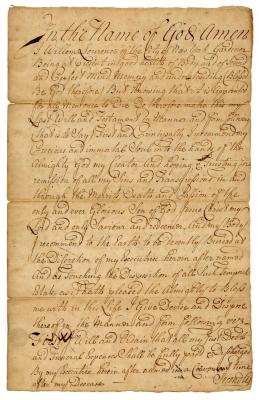 In the Name of God Amen
I William of the City of New York Gardener
Being at Present in good health of Body and of Sound
and Mind Memory and understanding Blessed
Be God therefore But knowing that it is appointed
for all Men once to Die Do therefore make this my
Last Will and Testament in Manner and form following
that is to Say First and Principally I recommend my
Precious and immortal Soul into the hands of the
Almighty God my Creator and hoping
remission of all my Sins and Transgressions
through the Merits Death and Passion of the
only and ever Glorious Son of God Jesus Christ my
Lord and only Saviour and Redeemer And my Body
I recommend to the Earth to be decently Buried at
the Discretion of my Executors herein after named
And as touching the Disposition of all Such temporal
Estate as it hath pleased the Almighty to Bless
me with in this Life I Give Devise and Dispose
thereof in the Manner and form following
I Will and Ordain that all my Just Debts
and Funeral Expences Shall be fully paid and
by my Executors herein after named in Convenient time
after my Decease